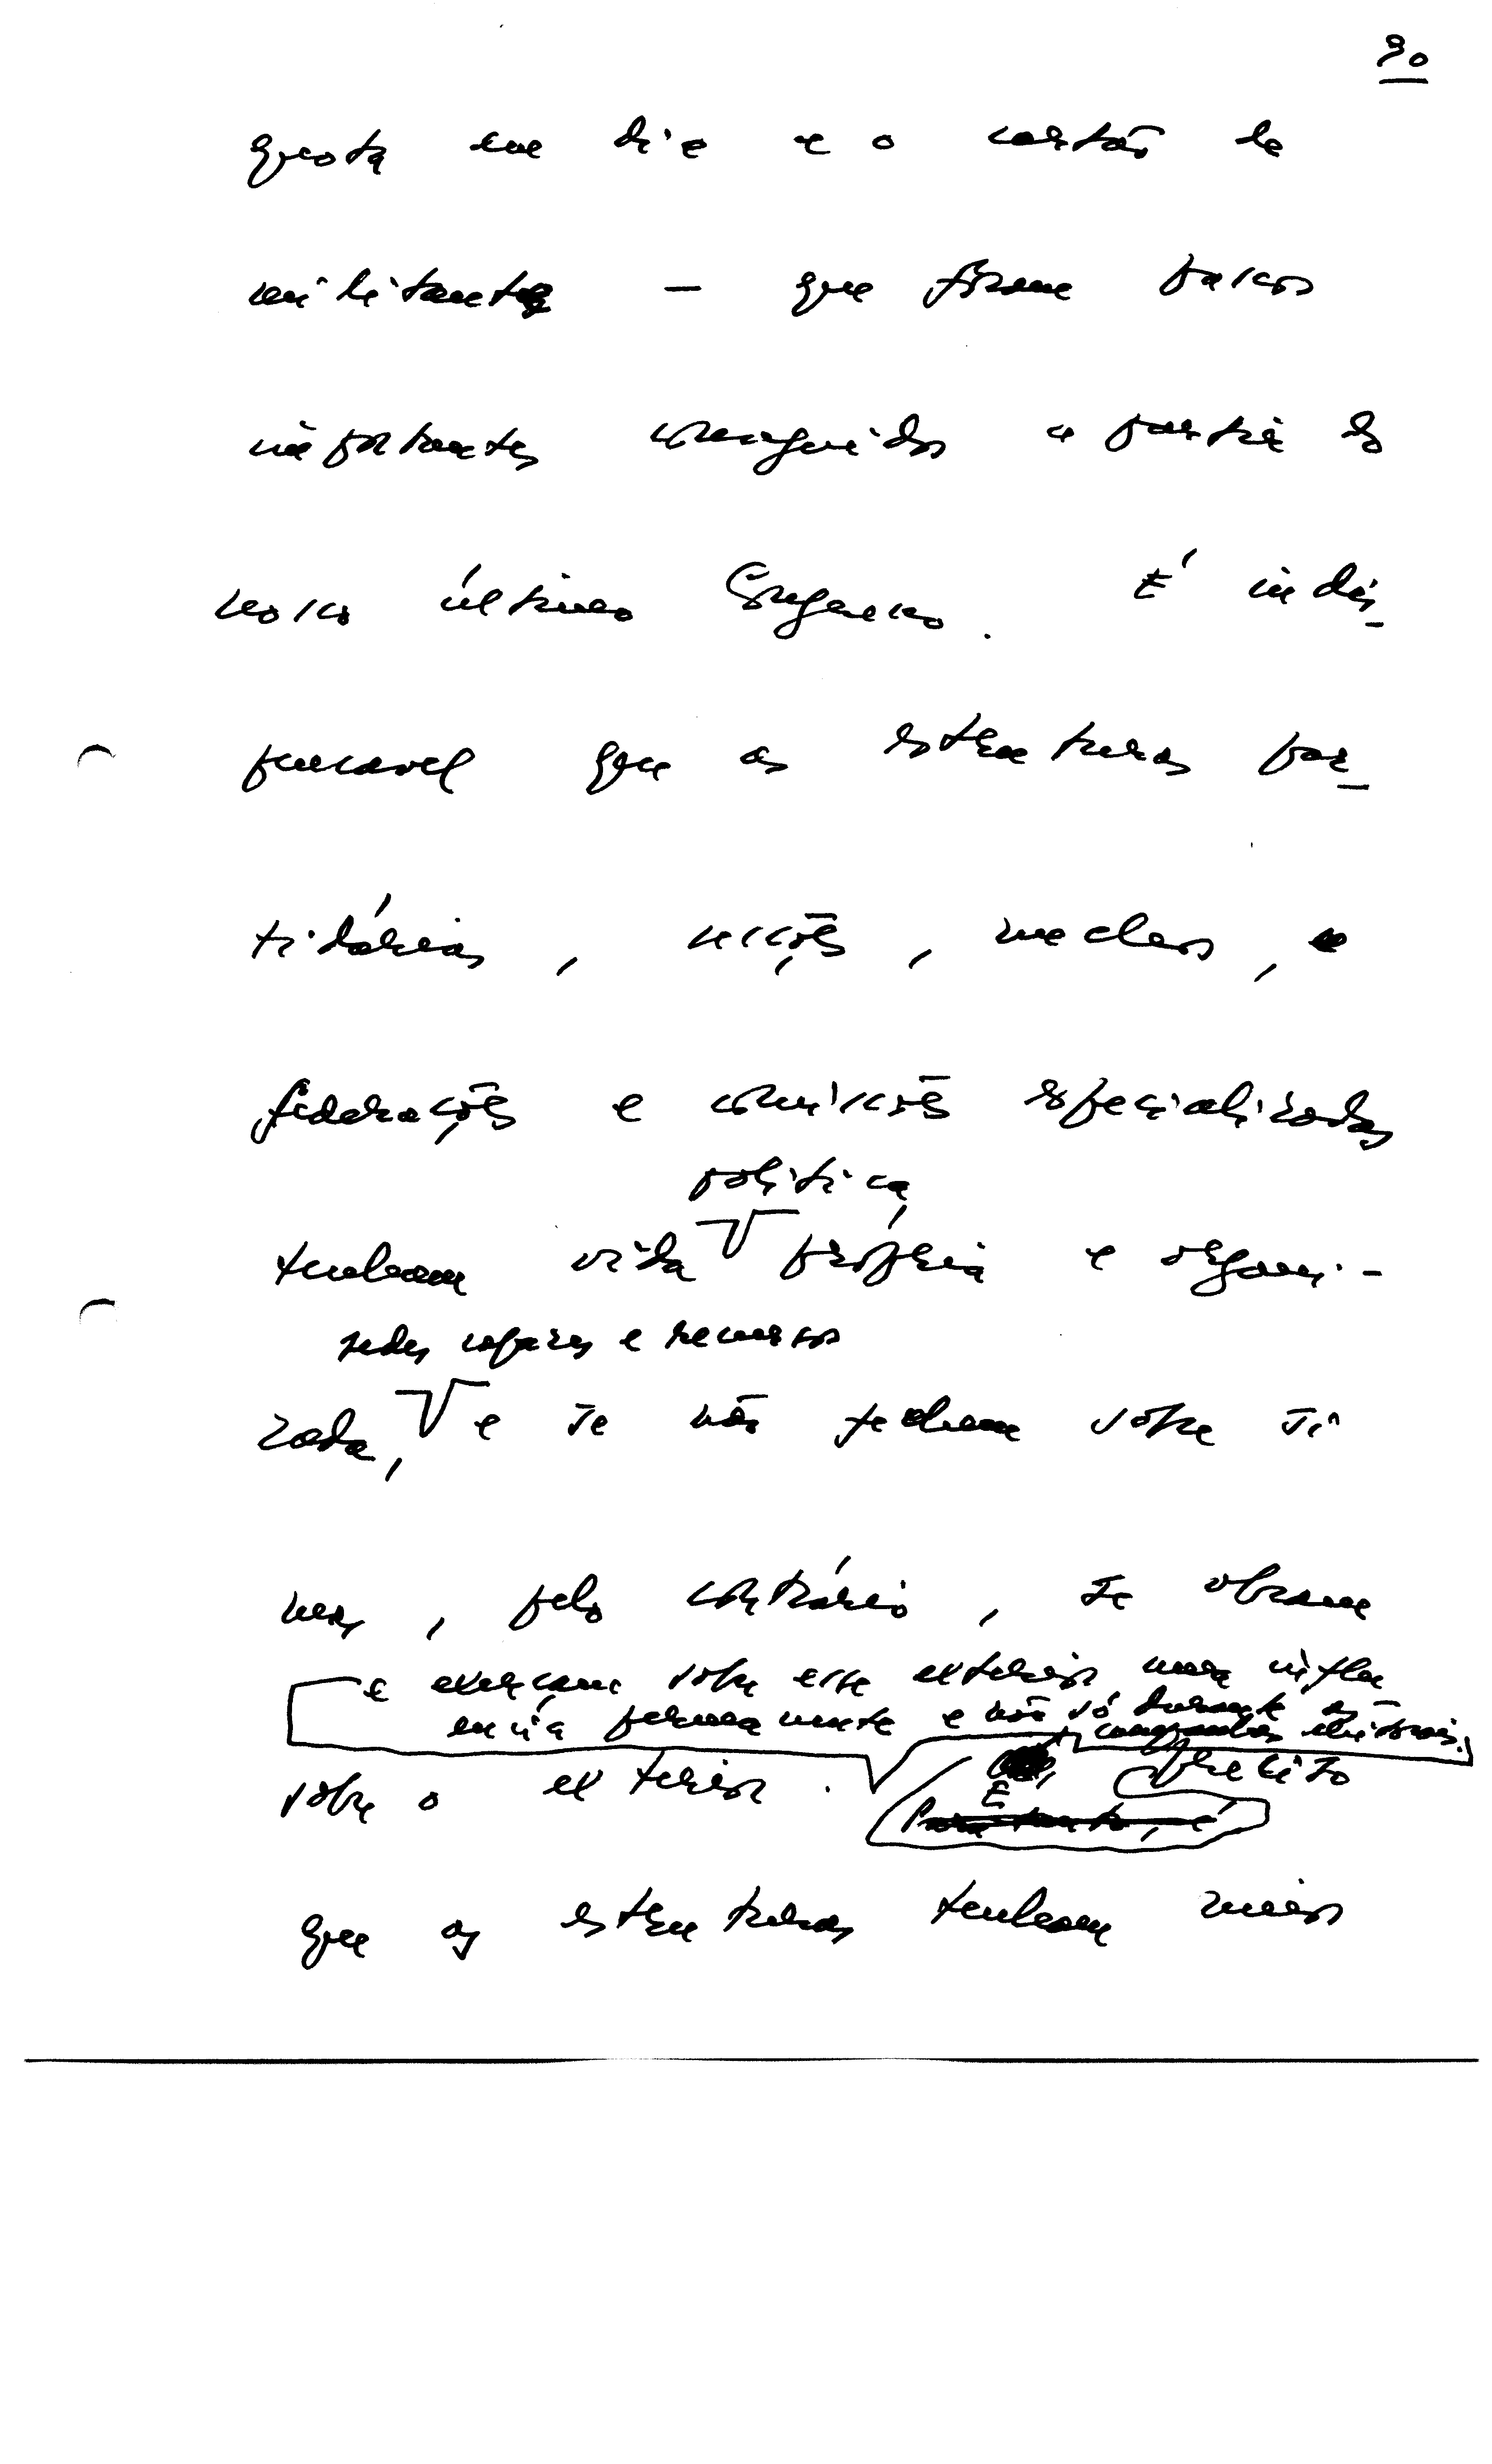 90
quota em dia e o cartão de
militante — que foram passos
importantes conseguidos a partir do
nosso último Congresso. É indis-
pensavel que as estruturas par-
tidárias, secções, nucleos,
federações e comissões especializadas
politica
tenham vida própria e organi-
sedes capazes e recursos
zada, e se não fecham sobre si
mas, pelo contrário, se abram
e exerçam sobre esse exterior uma influ
encia permanente e não só durante as
campanhas eleitorais.
sobre o exterior.
É preciso
Para tanto, é
que as estruturas tenham meios